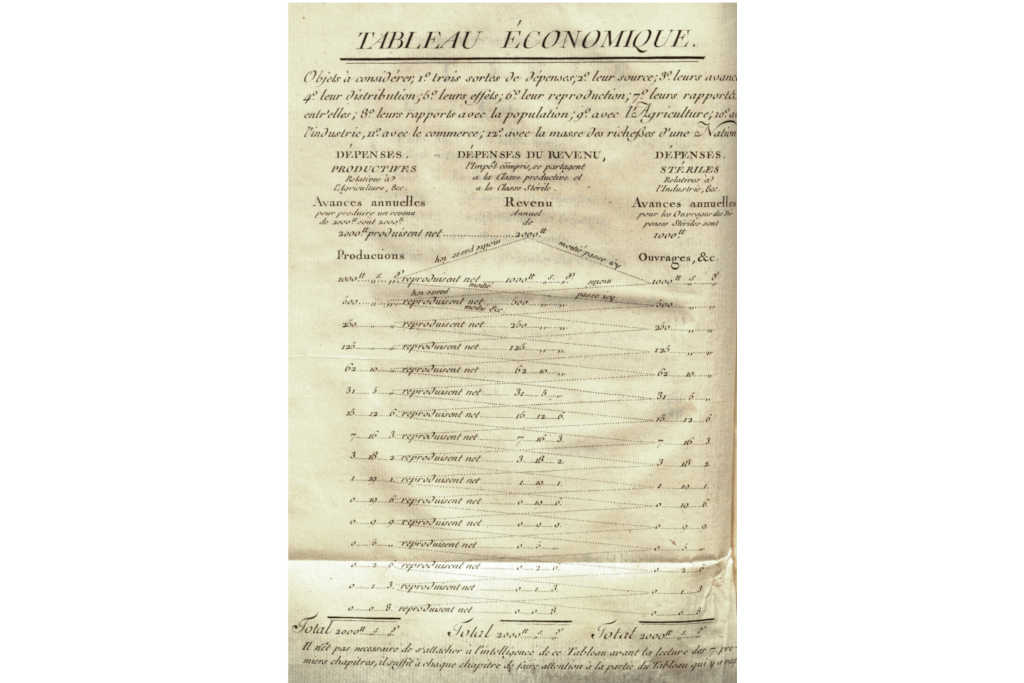 TABLEAU ÉCONOMIQUE.
Objets à considérer, 1.º trois sortes de dépenses; 2.º leur source; 3.º leurs
4.º leur distribution; 5.º leurs effets; 6.º leur reproduction; 7.º leurs
entr'elles; 8.º leurs rapports avec la population; 9.º avec l'Agriculture; 10.º
l'industrie, 11.º avec le commerce; 12.º avec la masse des richesses d'une Nation
DÉPENSES. DÉPENSES DU REVENU, DÉPENSES.
PRODUCTIVES l'Impôt compris, se partagent STÉRILES
Relatives à a la Classe productive et Relatives à
l'Agriculture, &c. a la Classe Stérile. l'Industrie, &c.
Avances annuelles Revenu Avances annuelles
pour produire un revenu Annuel pour les Ouvrages des
de 2000.tt sont 2000.tt de Stériles sont
2000.tt produisent net 2000.tt 1000.tt
moitié passe icy
Productions Ouvrages, &c.
1000.tt s. d. reproduisent net 1000.tt s. d. 1000.tt s. d.
moitié passe icy
500 „ „ reproduisent net 500 „ „ 500 „ „
moitié &c.
250 „ „ reproduisent net 250 „ „ 250 „ „
125 „ „ reproduisent net 125 „ „ 125 „ „
62 10 „ reproduisent net 62 10 „ 62 10 „
31 5 „ reproduisent net 31 5 „ 31 5 „
15 12 6 reproduisent net 15 12 6. 15 12 6
7 16 3. reproduisent net 7 16 3. 7 16 3.
3 18 2 reproduisent net 3. 18 2. 3 18 2
1 19 1. reproduisent net 1. 19 1. 1 19 1.
0 19 6 reproduisent net 0 19 6. 0 19 6
0 9 9. reproduisent net 0 9 9. 0 9 9
0 5 „ reproduisent net 0 5 „ 0 5 „
0 2 6 reproduisent net 0 2 6. 0 2 6
0 1 3. reproduisent net 0 1 3. 0 1 3
0 0 8. reproduisent net 0 0 8. 0 0 8.
Total 2000.tt s. d. Total 2000.tt s. d. Total 2000.tt s. d.
Il n'est pas necessaire de s'attacher à l'intelligence de ce Tableau avant la lecture des 7 pre-
miers chapitres, il suffit à chaque chapitre de faire attention à la partie du Tableau qui y a